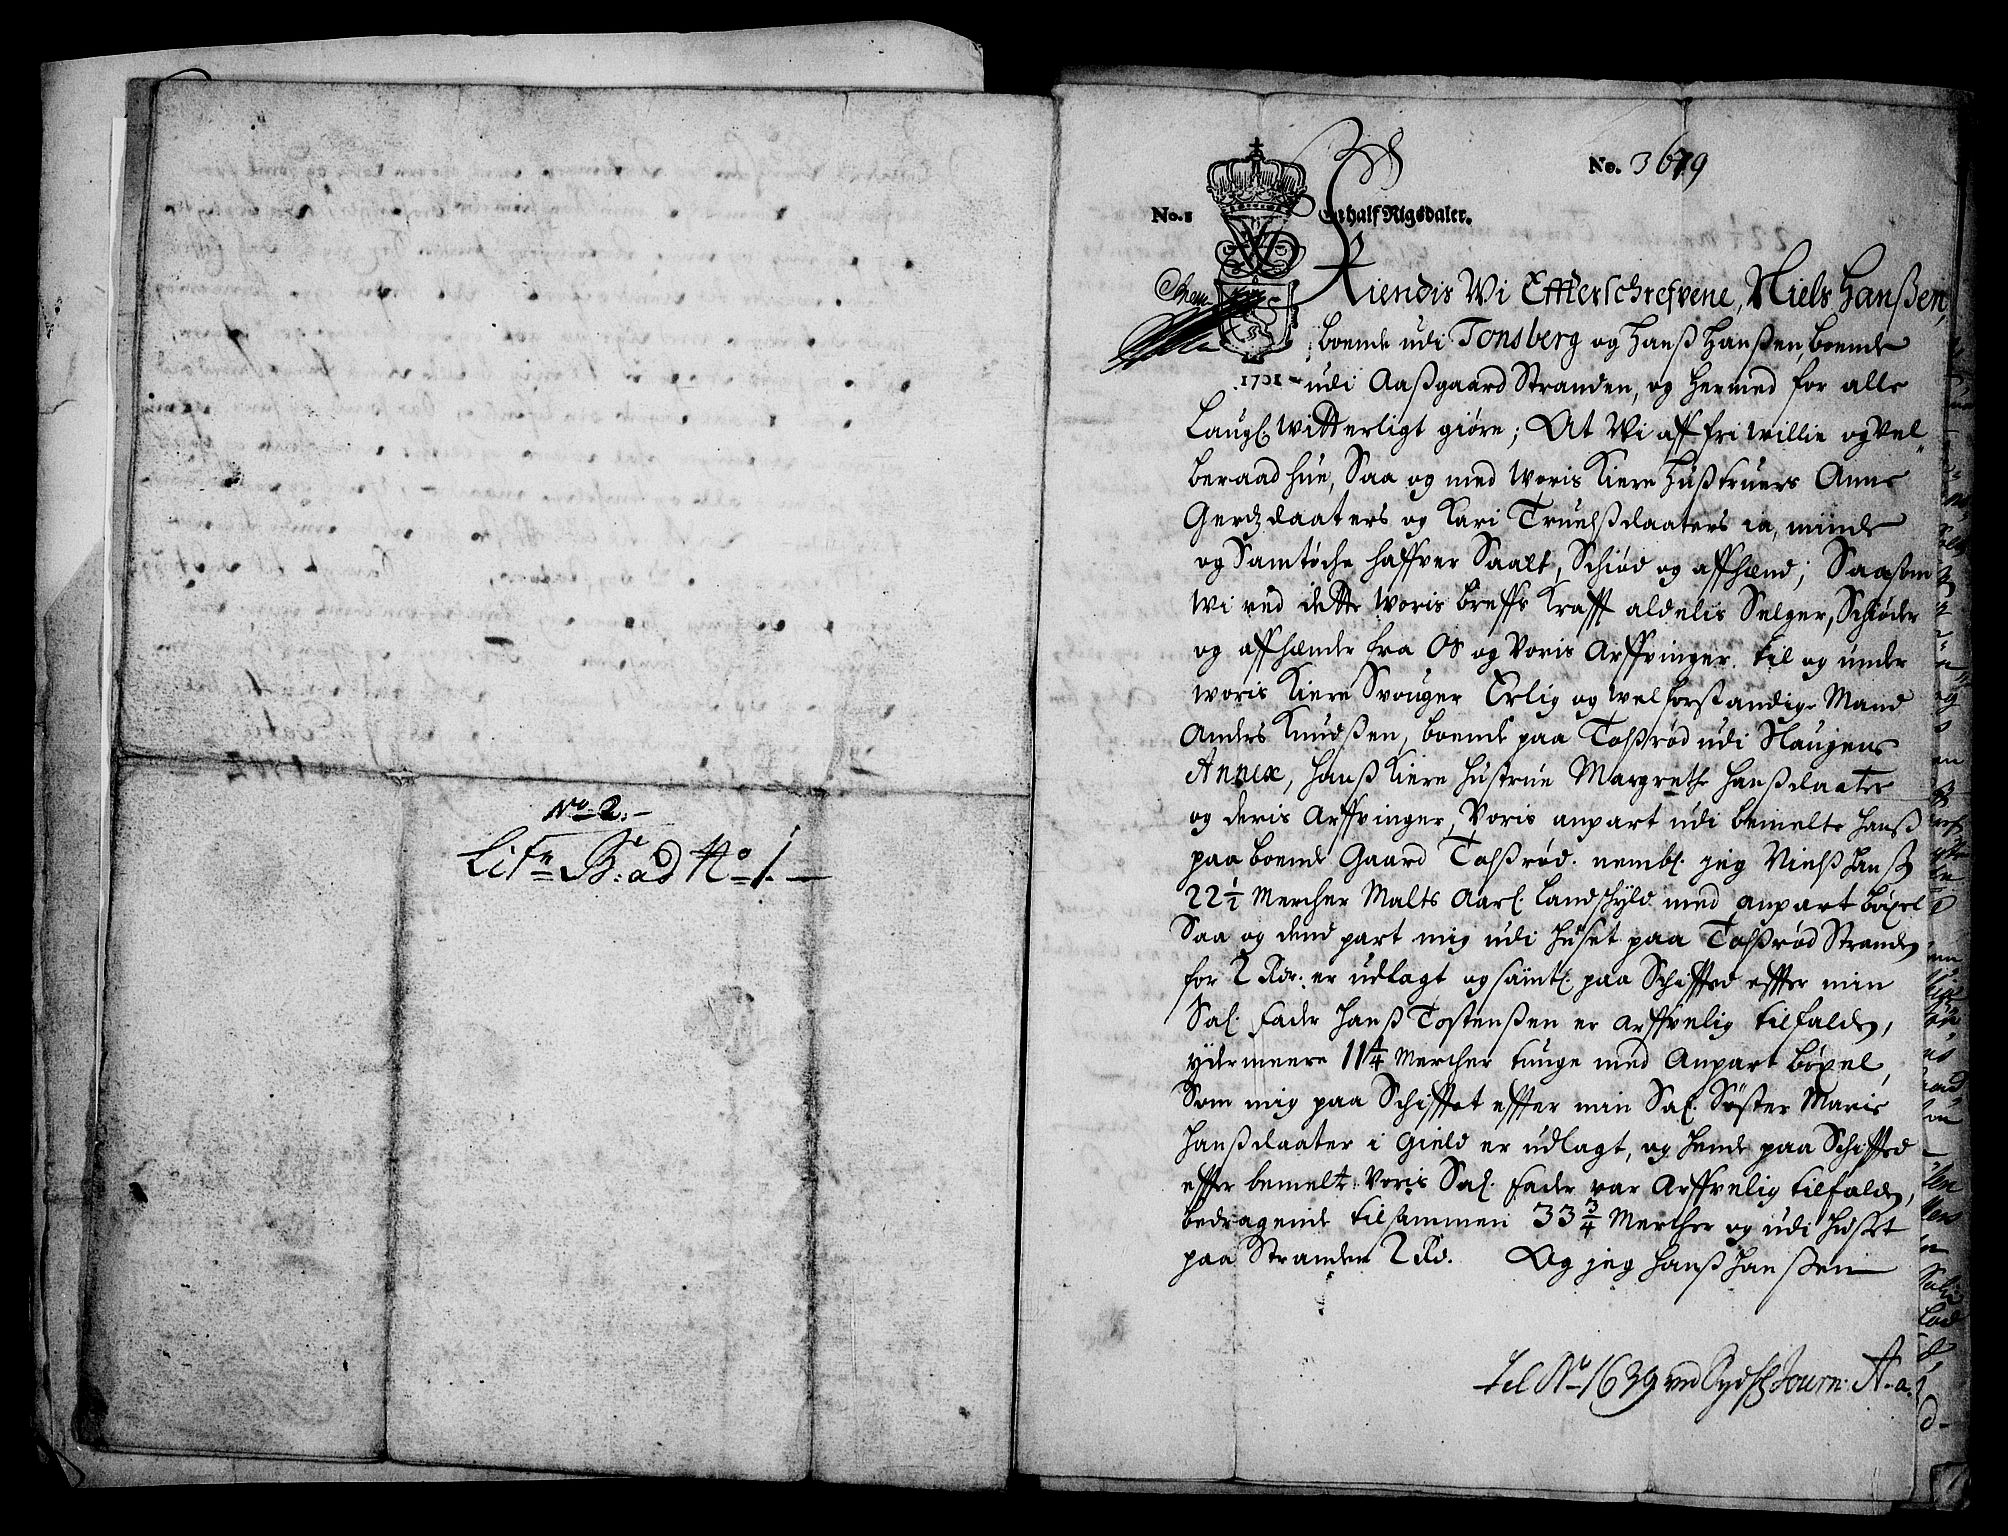 No. 2.
Litr B: ad No 1.
No. 3679
No. 1 En half Rigsdaler.
Kiendis Wi Effterschrefvene, Niels Hanßen,
boende udi Tonsberg og Hanß Hanßen, boende
1701 udi Aaßgaard Stranden, og hermed for alle
Laugl. witterligt giøre; At Wi aff fri willie og vel
beraad hue, Saa og med Woris Kiere Hüßtruers Anne
Gertzdaaters og Kari Truelßdaaters ia, minde
og Samtøche haffver Saalt, Schiød og affhænd; Saasom
Wi ved dette Woris breffs Krafft aldelis Selger, Schiøder
og affhænder fra Os og Voris Arffvinger til og under
Woris Kiere Svouger Erlig og welforstandige Mand
Anders Knudßen, boende paa Toßrød udi Slaugens
Annex, Hanß Kiere Hüstrue Margrethe Hanßdaater
og deris Arffvinger, Voris anpart udi bemelte Hanß
paa boende Gaard Toßrød. nembl. jeg Nielß Hanß
22½ Mercher Malts Aarl. Landschyld med anpart bøxel
Saa og dend part mig udi Huset paa Toßrød Stranden
for 2 Rdr. er udlagt og samtl. paa Schifftet effter min
Sal. Fader Hanß Tostenßen er arffvelig tilfalden,
ydermeere 11¼ Mercher tunge med Anpart bøxel,
Som mig paa Schifftet effter min Sal. Søster Maris
Hanßdaater i Gield er udlagt, og hende paa Schifftet
effter bemelte Voris Sal. Fader var Arffvelig tilfalden,
bedragende tilsammen 33¾ Mercher og udi Huset
paa Stranden 2 Rd. Og jeg Hanß Hanßen
Til No 1639 Journ: A-a.